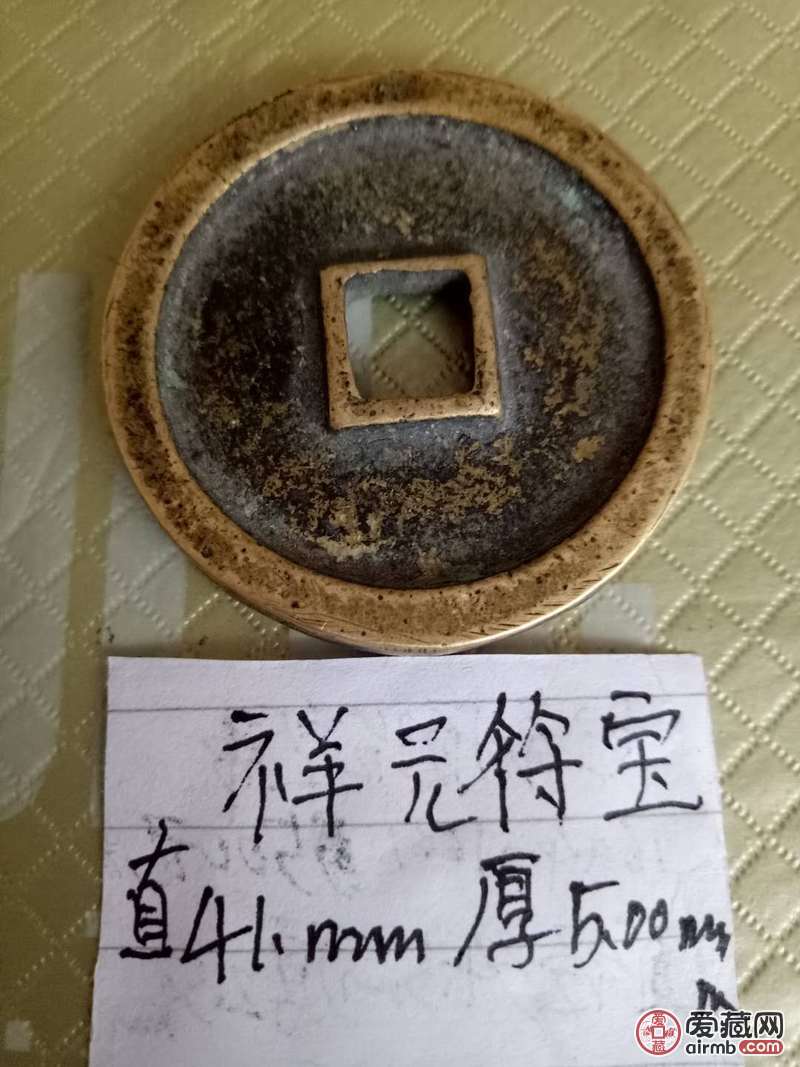 祥元符宝
直41.mm 厚5.00mm
爱藏网
airmb.com